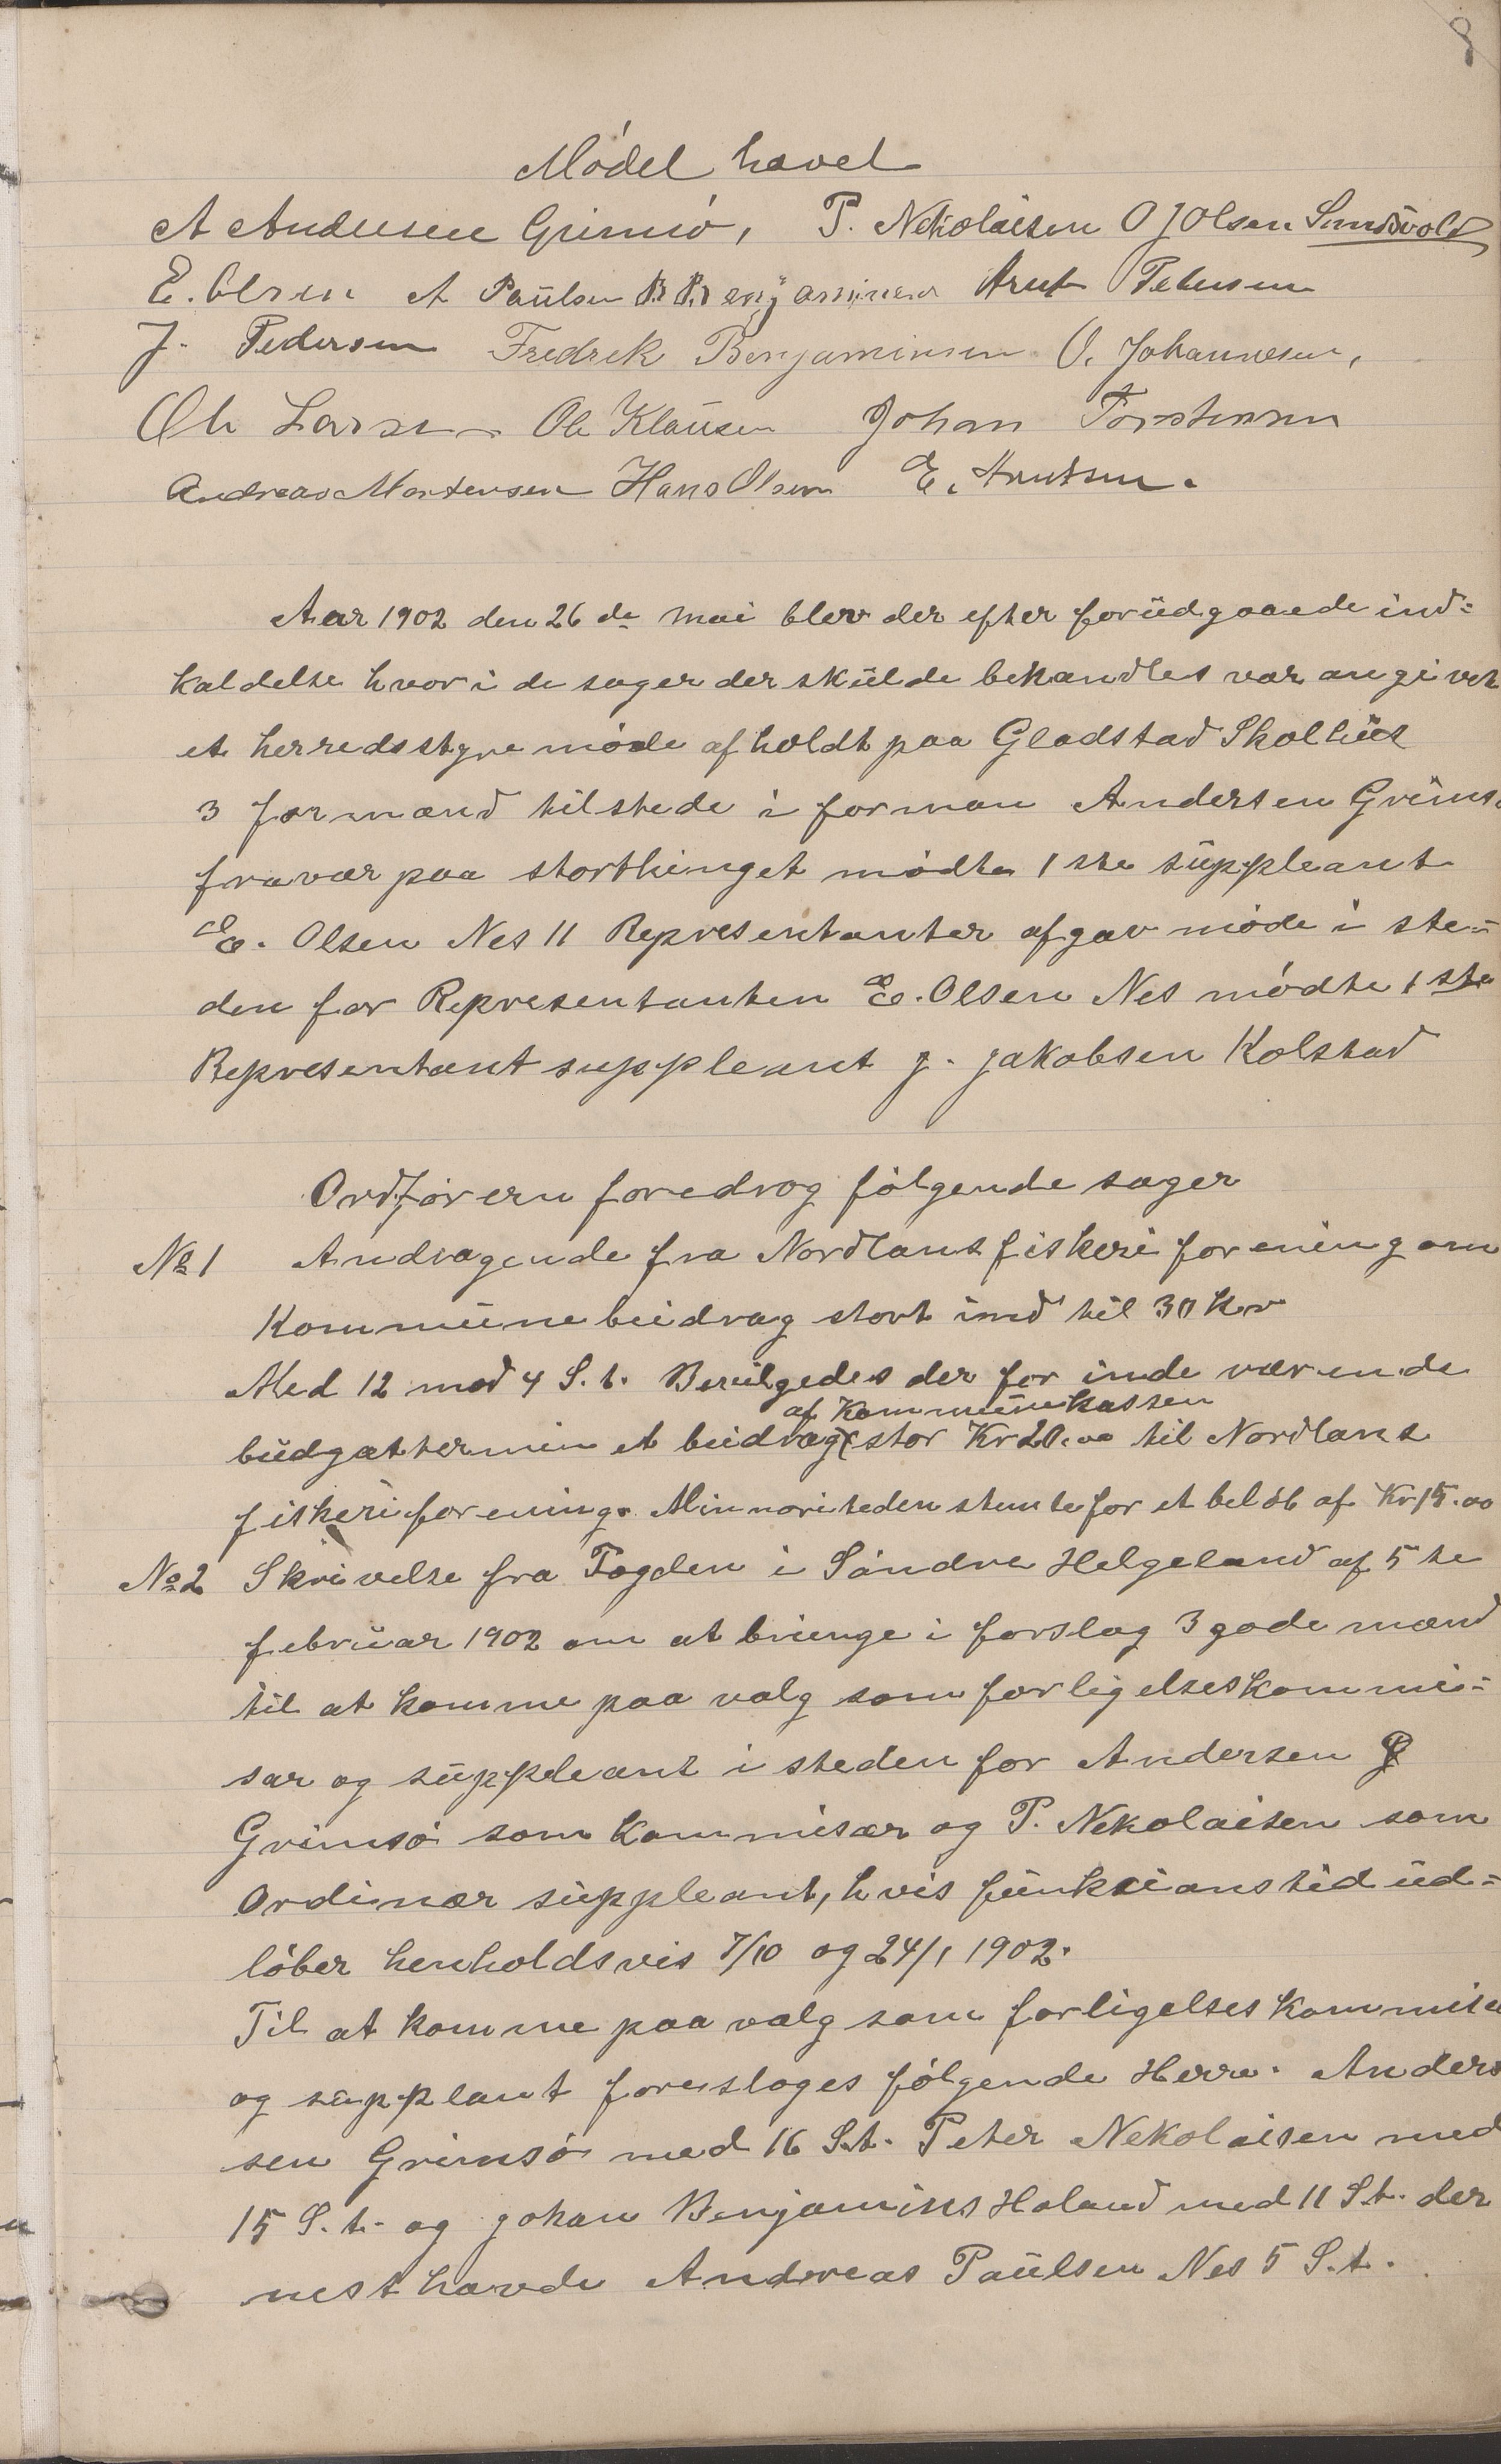 8
Mödet hævet
A Andersen Grimsö, P. Nekolaisen O J Olsen Sundsvold
E. Olsen A Paulsen B. Benjaminsen Arnt Petersen
J. Pedersen Fredrek Benjaminsen O. Johannesen,
Ole Larsen Ole Klausen Johan Torstensen
Andreas Mortensen Hans Olsen E. Arntsen.
Aar 1902 den 26 de mai blev der efter forudgaaende ind=
kaldelse hvor i de sager der skulde behandles var angivet
et herredsstyremöde afholdt paa Gladstad Skolhus
3 formænd tilstede i forman Andersen Grims
fravær paa storthinget mödte 1ste suppleant
E. Olsen Nes 11 Representanter afgav möde i ste=
den for Representanten E. Olsen Nes mödte 1ste
Representant suppleant J. Jakobsen Kolstad
Ordförern foredrog fölgende sager
No 1 Andragende fra Nordlans fiskeriforening om
Kommune beidrag stort ind til 30 Kr
Med 12 mod 4 S. t. Beviilgedes der for inde værende
af Kommunekassen
budgattermin et beidrag stor Kr 20.00 til Nordlans
fiskeriforening. Minnoriteden stemte for et belöb af Kr 15.00
No 2 Skrivelse fra Fogden i Söndre Helgeland af 5 te
februar 1902 om at bringe i forslag 3 gode mænd
til at komme paa valg som forligelseskommi=
sær og suppleant i steden for Andersen
Grimsö som Kommisær og P. Nekolaisen som
Ordinær suppleant, hvis funksionstid ud=
löber henholdsvis 7/10 og 24/1 1902.
Til at komme paa valg som forligelseskommisæ
og supplant foresloges fölgende Herre. Anders
sen Grimsö med 16 S.t. Peter Nekolaisen med
15 S. t. og Johan Benjamins Holand med 11 S.t. der
nest havde Andreas Paulsen Nes 5 S.t.